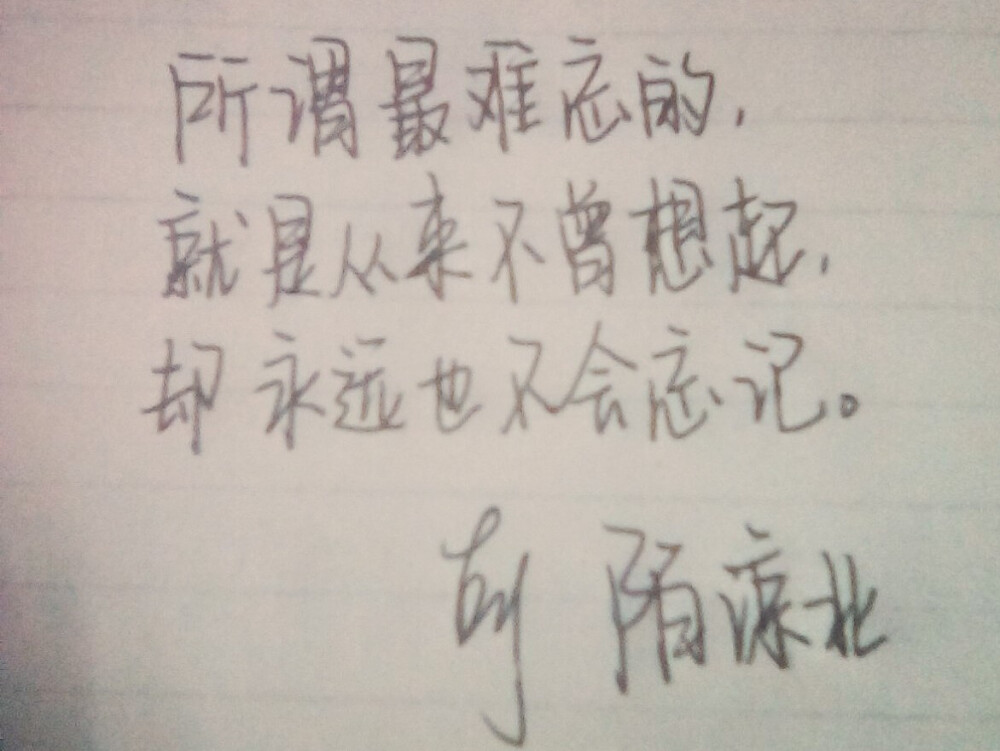 所谓最难忘的,
就是从来不曾想起,
却永远也不会忘记。
陌凉北